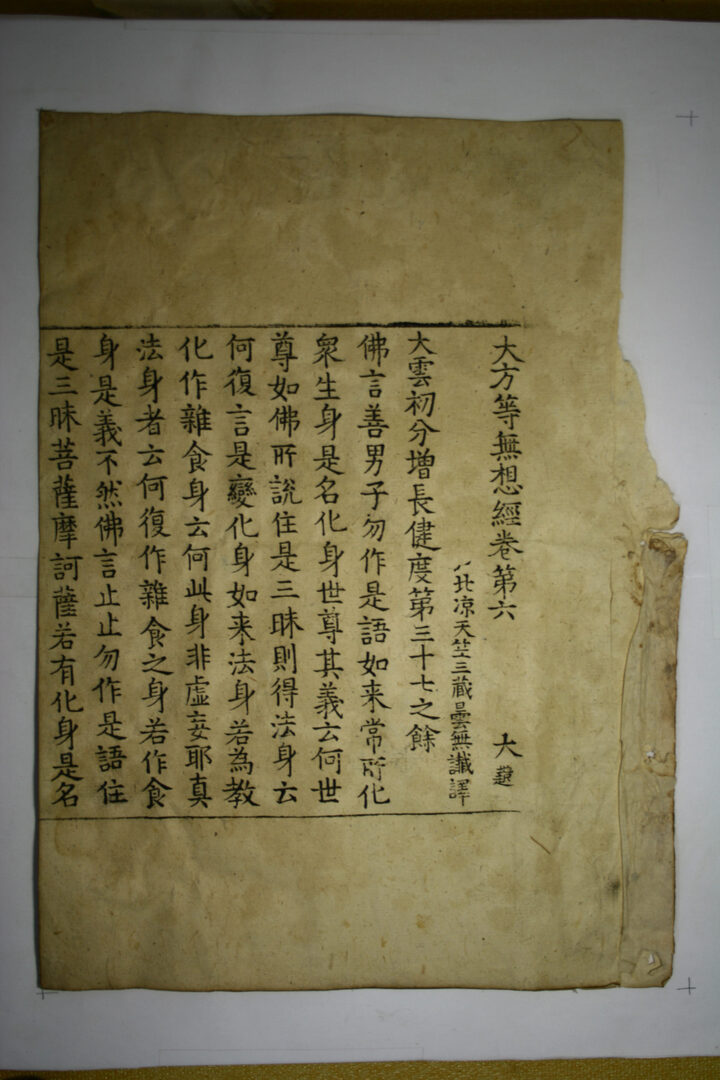 大方等無想經卷第六 大
北涼天竺三藏曇無讖譯
大雲初分增長健度第三十七之餘
佛言善男子勿作是語如来常所化
衆生身是名化身世尊其義云何世
尊如佛所說住是三昧則得法身云
何復言是變化身如来法身若為教
化作雜食身云何此身非虛妄耶真
法身者云何復作雜食之身若作食
身是義不然佛言止止勿作是語住
是三昧菩薩摩訶薩若有化身是名